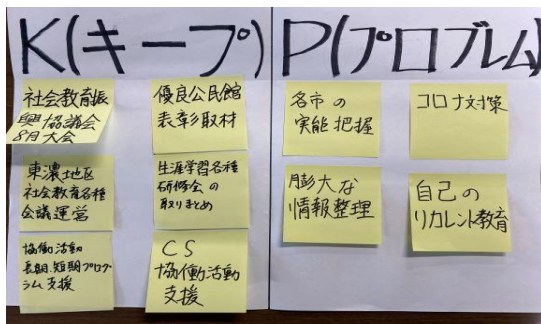 K(キープ)
社会教育振
興協議会
8月大会
優良公民館
表彰取材
東濃地区
社会教育各種
会議運営
生涯学習各種
研修会の
取りまとめ
協働活動
長期、短期プログ
ラム支援
CS
協働活動
支援
P(プロブレム)
各市の
実態把握
コロナ対策
膨大な
情報整理
自己の
リカレント教育